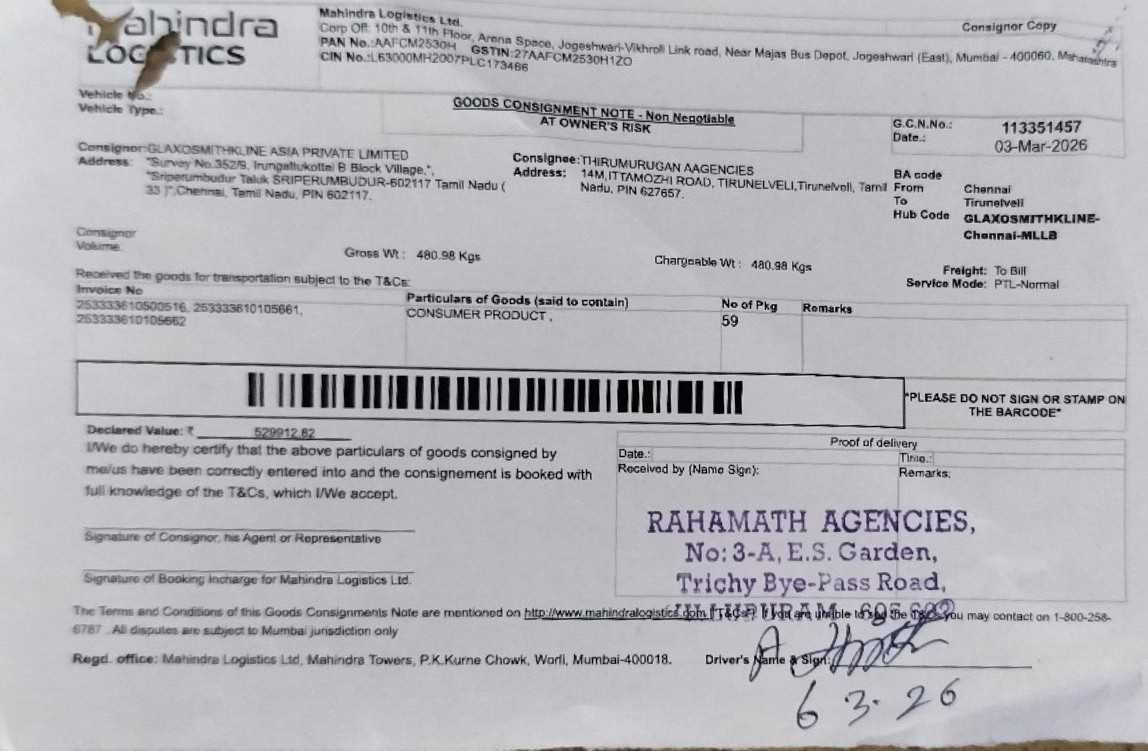 Mahindra
LOGISTICS
Mahindra Logistics Ltd.
Corp Off: 10th & 11th Floor, Arena Space, Jogeshwari-Vikhroli Link road, Near Majas Bus Depot, Jogeshwari (East), Mumbai - 400060, Maharashtra
PAN No.:AAFCM2530H GSTIN:27AAFCM2530H1ZO
CIN No.:L63000MH2007PLC173466
Consignor Copy
Vehicle No.:
Vehicle Type.:
GOODS CONSIGNMENT NOTE - Non Negotiable
AT OWNER'S RISK
G.C.N.No.: 113351457
Date.: 03-Mar-2026
Consignor:GLAXOSMITHKLINE ASIA PRIVATE LIMITED
Address: "Survey No.352/9, Irungattukottai B Block Village,",
"Sriperumbudur Taluk SRIPERUMBUDUR-602117 Tamil Nadu (
33 )",Chennai, Tamil Nadu, PIN 602117.
Consignee:THIRUMURUGAN AAGENCIES
Address: 14M,ITTAMOZHI ROAD, TIRUNELVELI,Tirunelveli, Tamil
Nadu, PIN 627657.
BA code
From Chennai
To Tirunelveli
Hub Code GLAXOSMITHKLINE-
Chennai-MLLB
Consignor
Volume
Gross Wt : 480.98 Kgs
Chargeable Wt : 480.98 Kgs
Freight: To Bill
Service Mode: PTL-Normal
Received the goods for transportation subject to the T&Cs:
Invoice No
253333610500516, 253333610105661,
253333610105662
Particulars of Goods (said to contain)
CONSUMER PRODUCT ,
No of Pkg
59
Remarks
*PLEASE DO NOT SIGN OR STAMP ON
THE BARCODE*
Declared Value: ₹ 529912.62
I/We do hereby certify that the above particulars of goods consigned by
me/us have been correctly entered into and the consignement is booked with
full knowledge of the T&Cs, which I/We accept.
Signature of Consignor, his Agent or Representative
Signature of Booking Incharge for Mahindra Logistics Ltd.
Proof of delivery
Date.:
Time.:
Received by (Name Sign):
Remarks:
RAHAMATH AGENCIES,
No: 3-A, E.S. Garden,
Trichy Bye-Pass Road,
The Terms and Conditions of this Goods Consignments Note are mentioned on http://www.mahindralogistics.com (T&Cs). If you are unable to see the T&Cs you may contact on 1-800-258-
6787 . All disputes are subject to Mumbai jurisdiction only
Regd. office: Mahindra Logistics Ltd, Mahindra Towers, P.K.Kurne Chowk, Worli, Mumbai-400018.
Driver's Name & Sign:
6 3. 26